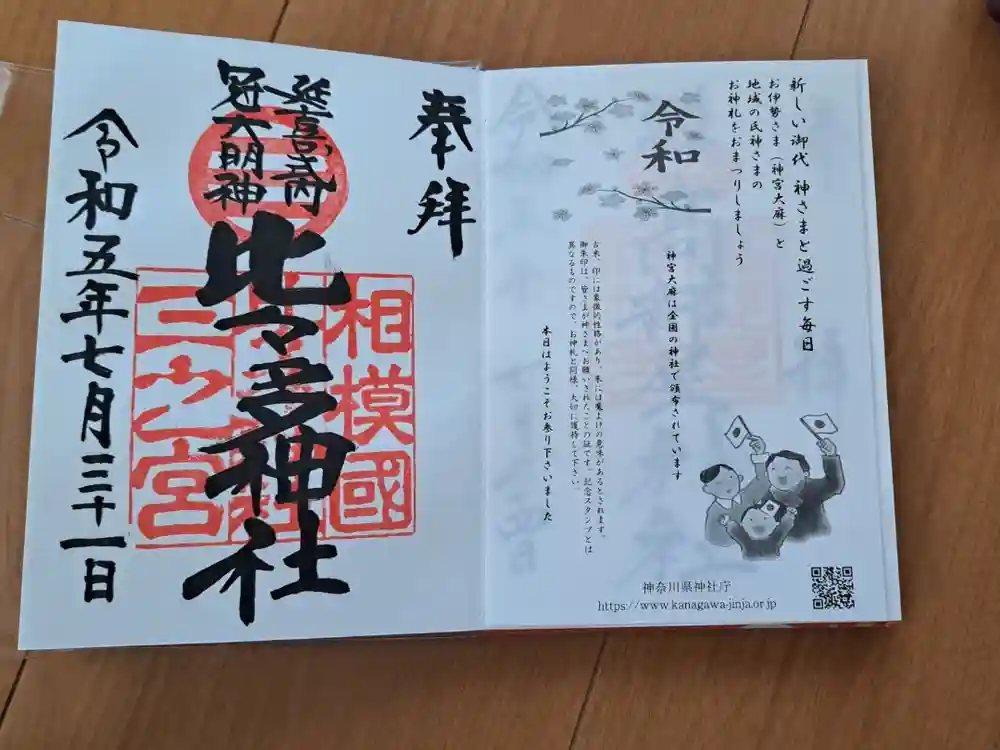 奉拝
延喜式内
冠大明神
比々多神社
相模國
三之宮
令和五年七月三十一日
新しい御代 神さまと過ごす毎日
お伊勢さま（神宮大麻）と
地域の氏神さまの
お神札をおまつりしましょう
令和
神宮大麻は全国の神社で頒布されています
古来、印には象徴的性格があり、朱には魔よけの意味があるとされます。
御朱印は、皆さまが神さまへお願いされたことの証です。記念スタンプとは
異なるものですので、お神札と同様、大切に護持して下さい。
本日はようこそお参り下さいました
神奈川県神社庁
https://www.kanagawa-jinja.or.jp